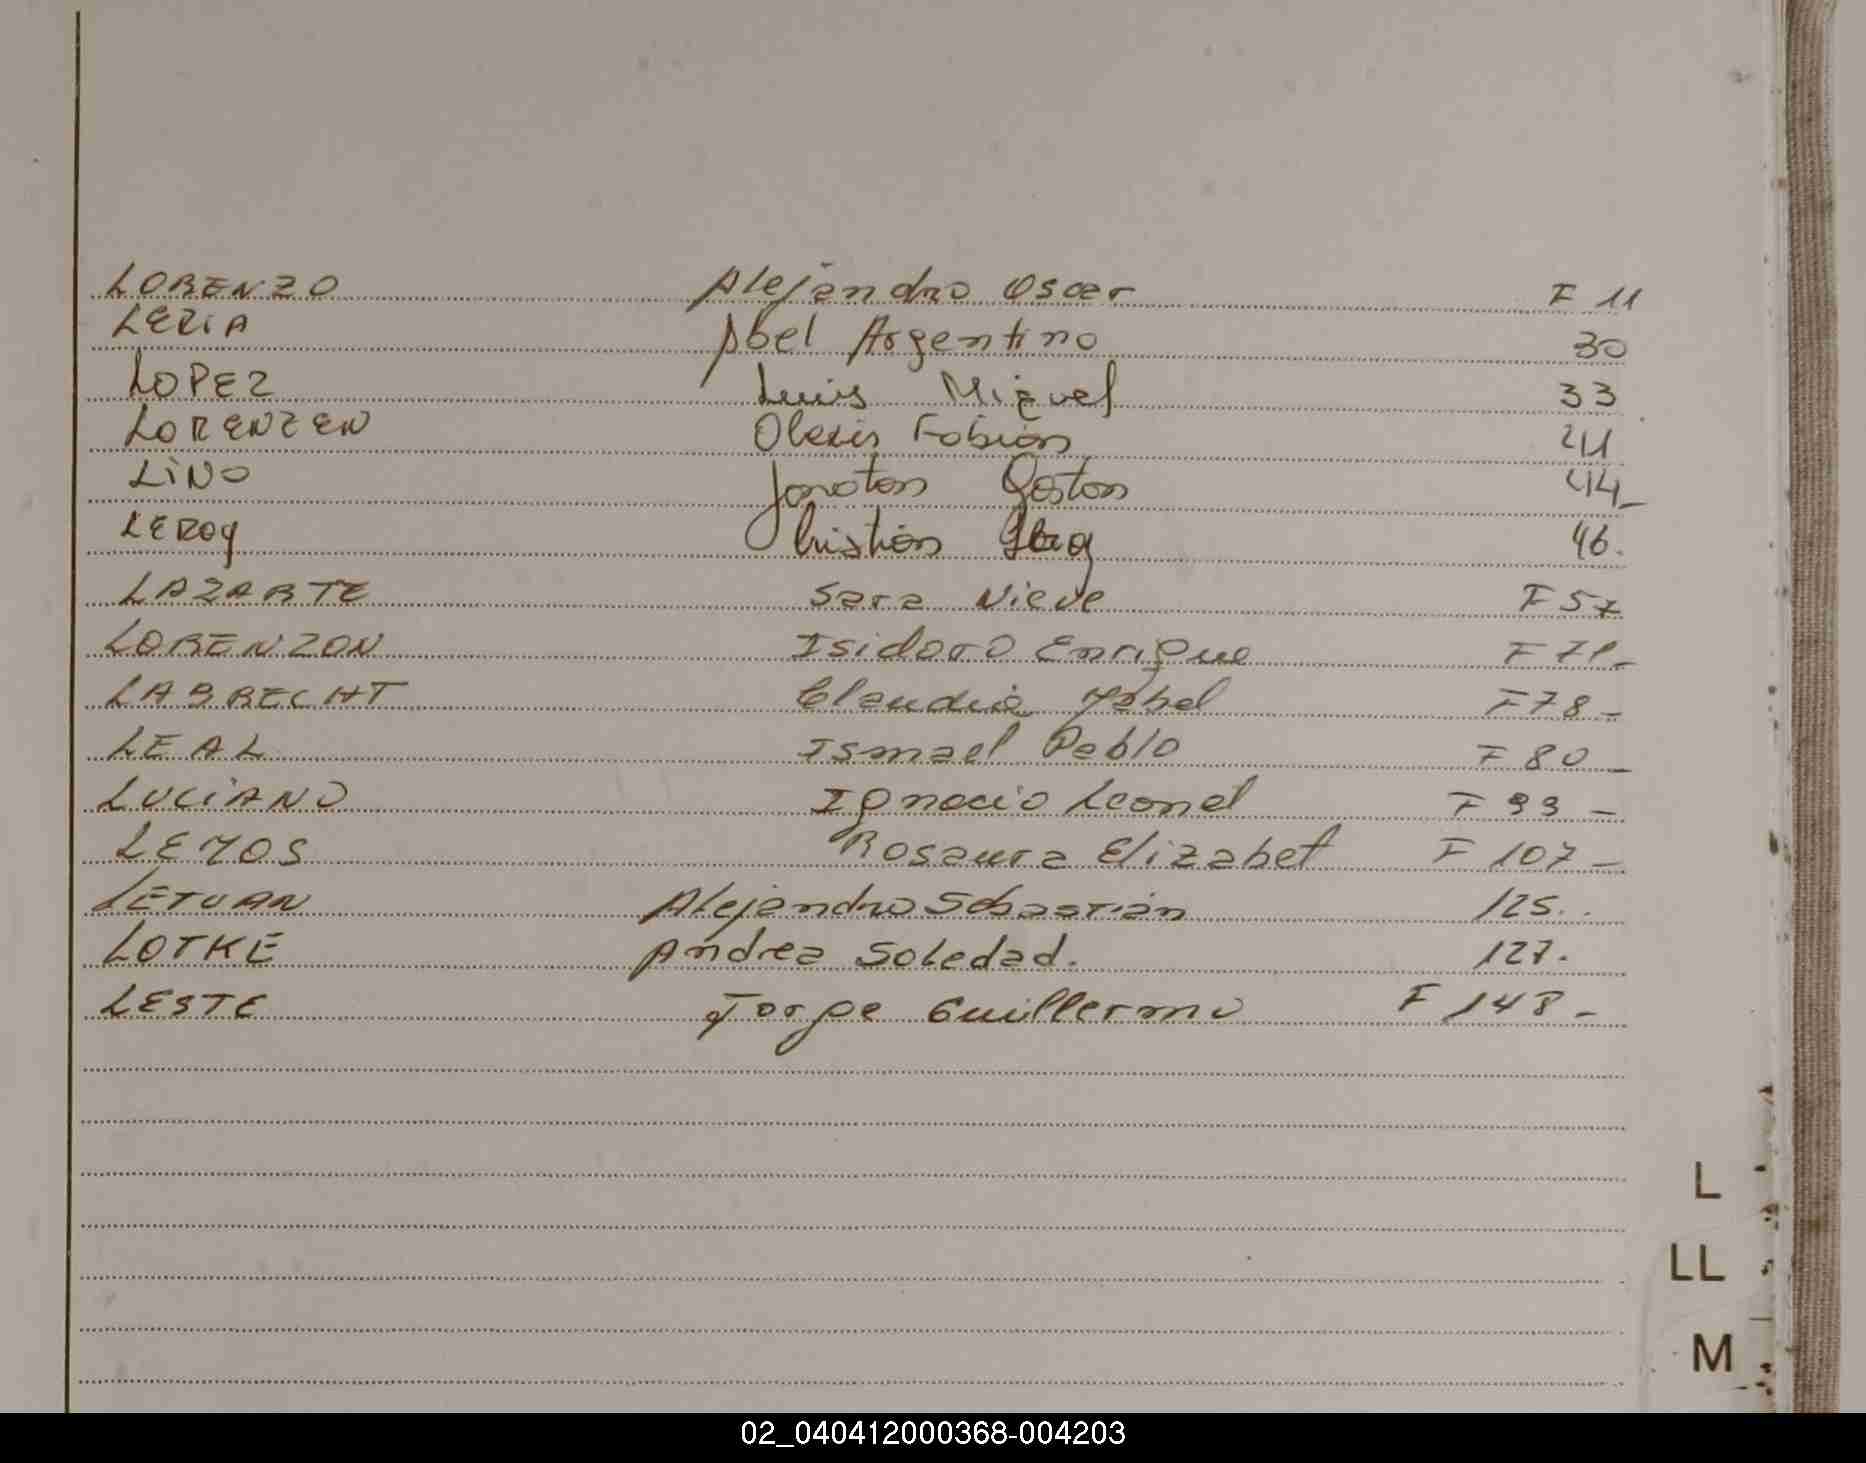 LORENZO Alejandro Oscar F 11
LERIA Abel Argentino 30
LOPEZ Luis Miguel 33
LORENZEN Alexis Fabián 41
LINO Jonatan Gastón 44-
LEROY Cristian 46.
LAZARTE Sara Nieve F 57
LORENZON Isidoro Enrique F 71-
LABRECHT Claudia Mabel F 78-
LEAL Ismael Pablo F 80-
LUCIANO Ignacio Leonel F 93-
LEMOS Rosaura Elizabet F 107-
LETUAN Alejandro Sebastián 125.
LOTKE Andrea Soledad. 127.
LESTE Jorge Guillermo F 148-
L
LL
M
02_040412000368-004203